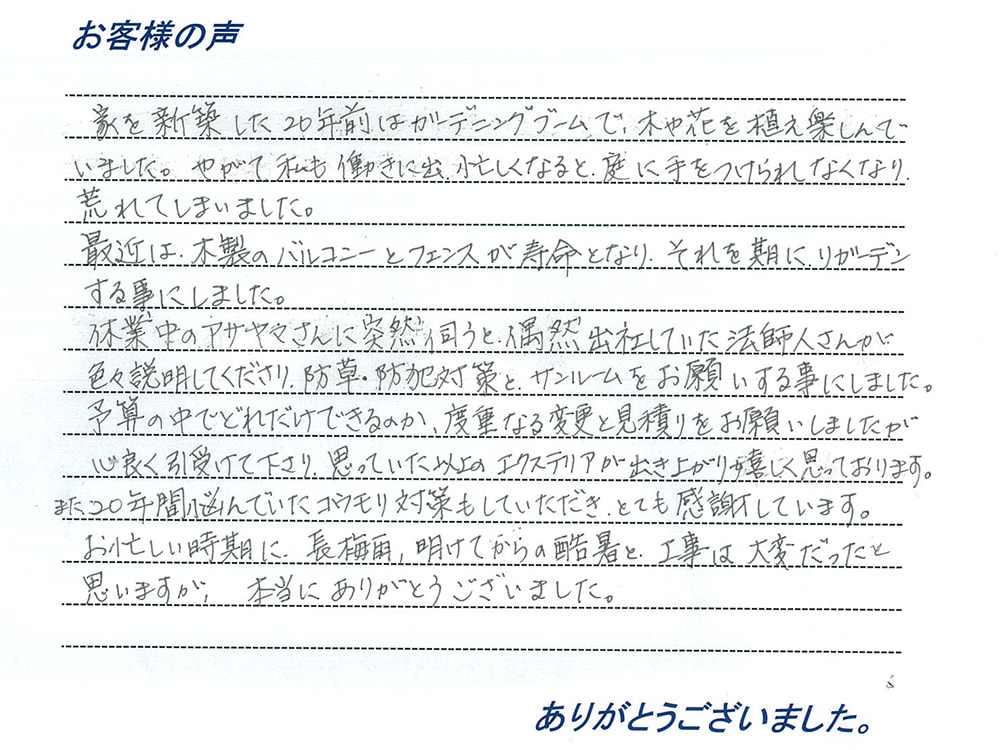 お客様の声
家を新築した20年前はガーデニングブームで、木や花を植え楽しんで
いました。やがて私も働きに出、忙しくなると、庭に手をつけられなくなり、
荒れてしまいました。
最近は、木製のバルコニーとフェンスが寿命となり、それを期に、リガーデン
する事にしました。
休業中のアサヤマさんに突然伺うと、偶然出社していた法師人さんが
色々説明してくださり、防草・防犯対策と、サンルームをお願いする事にしました。
予算の中でどれだけできるのか、度重なる変更と見積りをお願いしましたが
心良く引受けて下さり、思っていた以上のエクステリアが出き上がり嬉しく思っております。
また20年間悩んでいたコウモリ対策もしていただき、とても感謝しています。
お忙しい時期に、長梅雨、明けてからの酷暑と、工事は大変だったと
思いますが、本当にありがとうございました。
ありがとうございました。